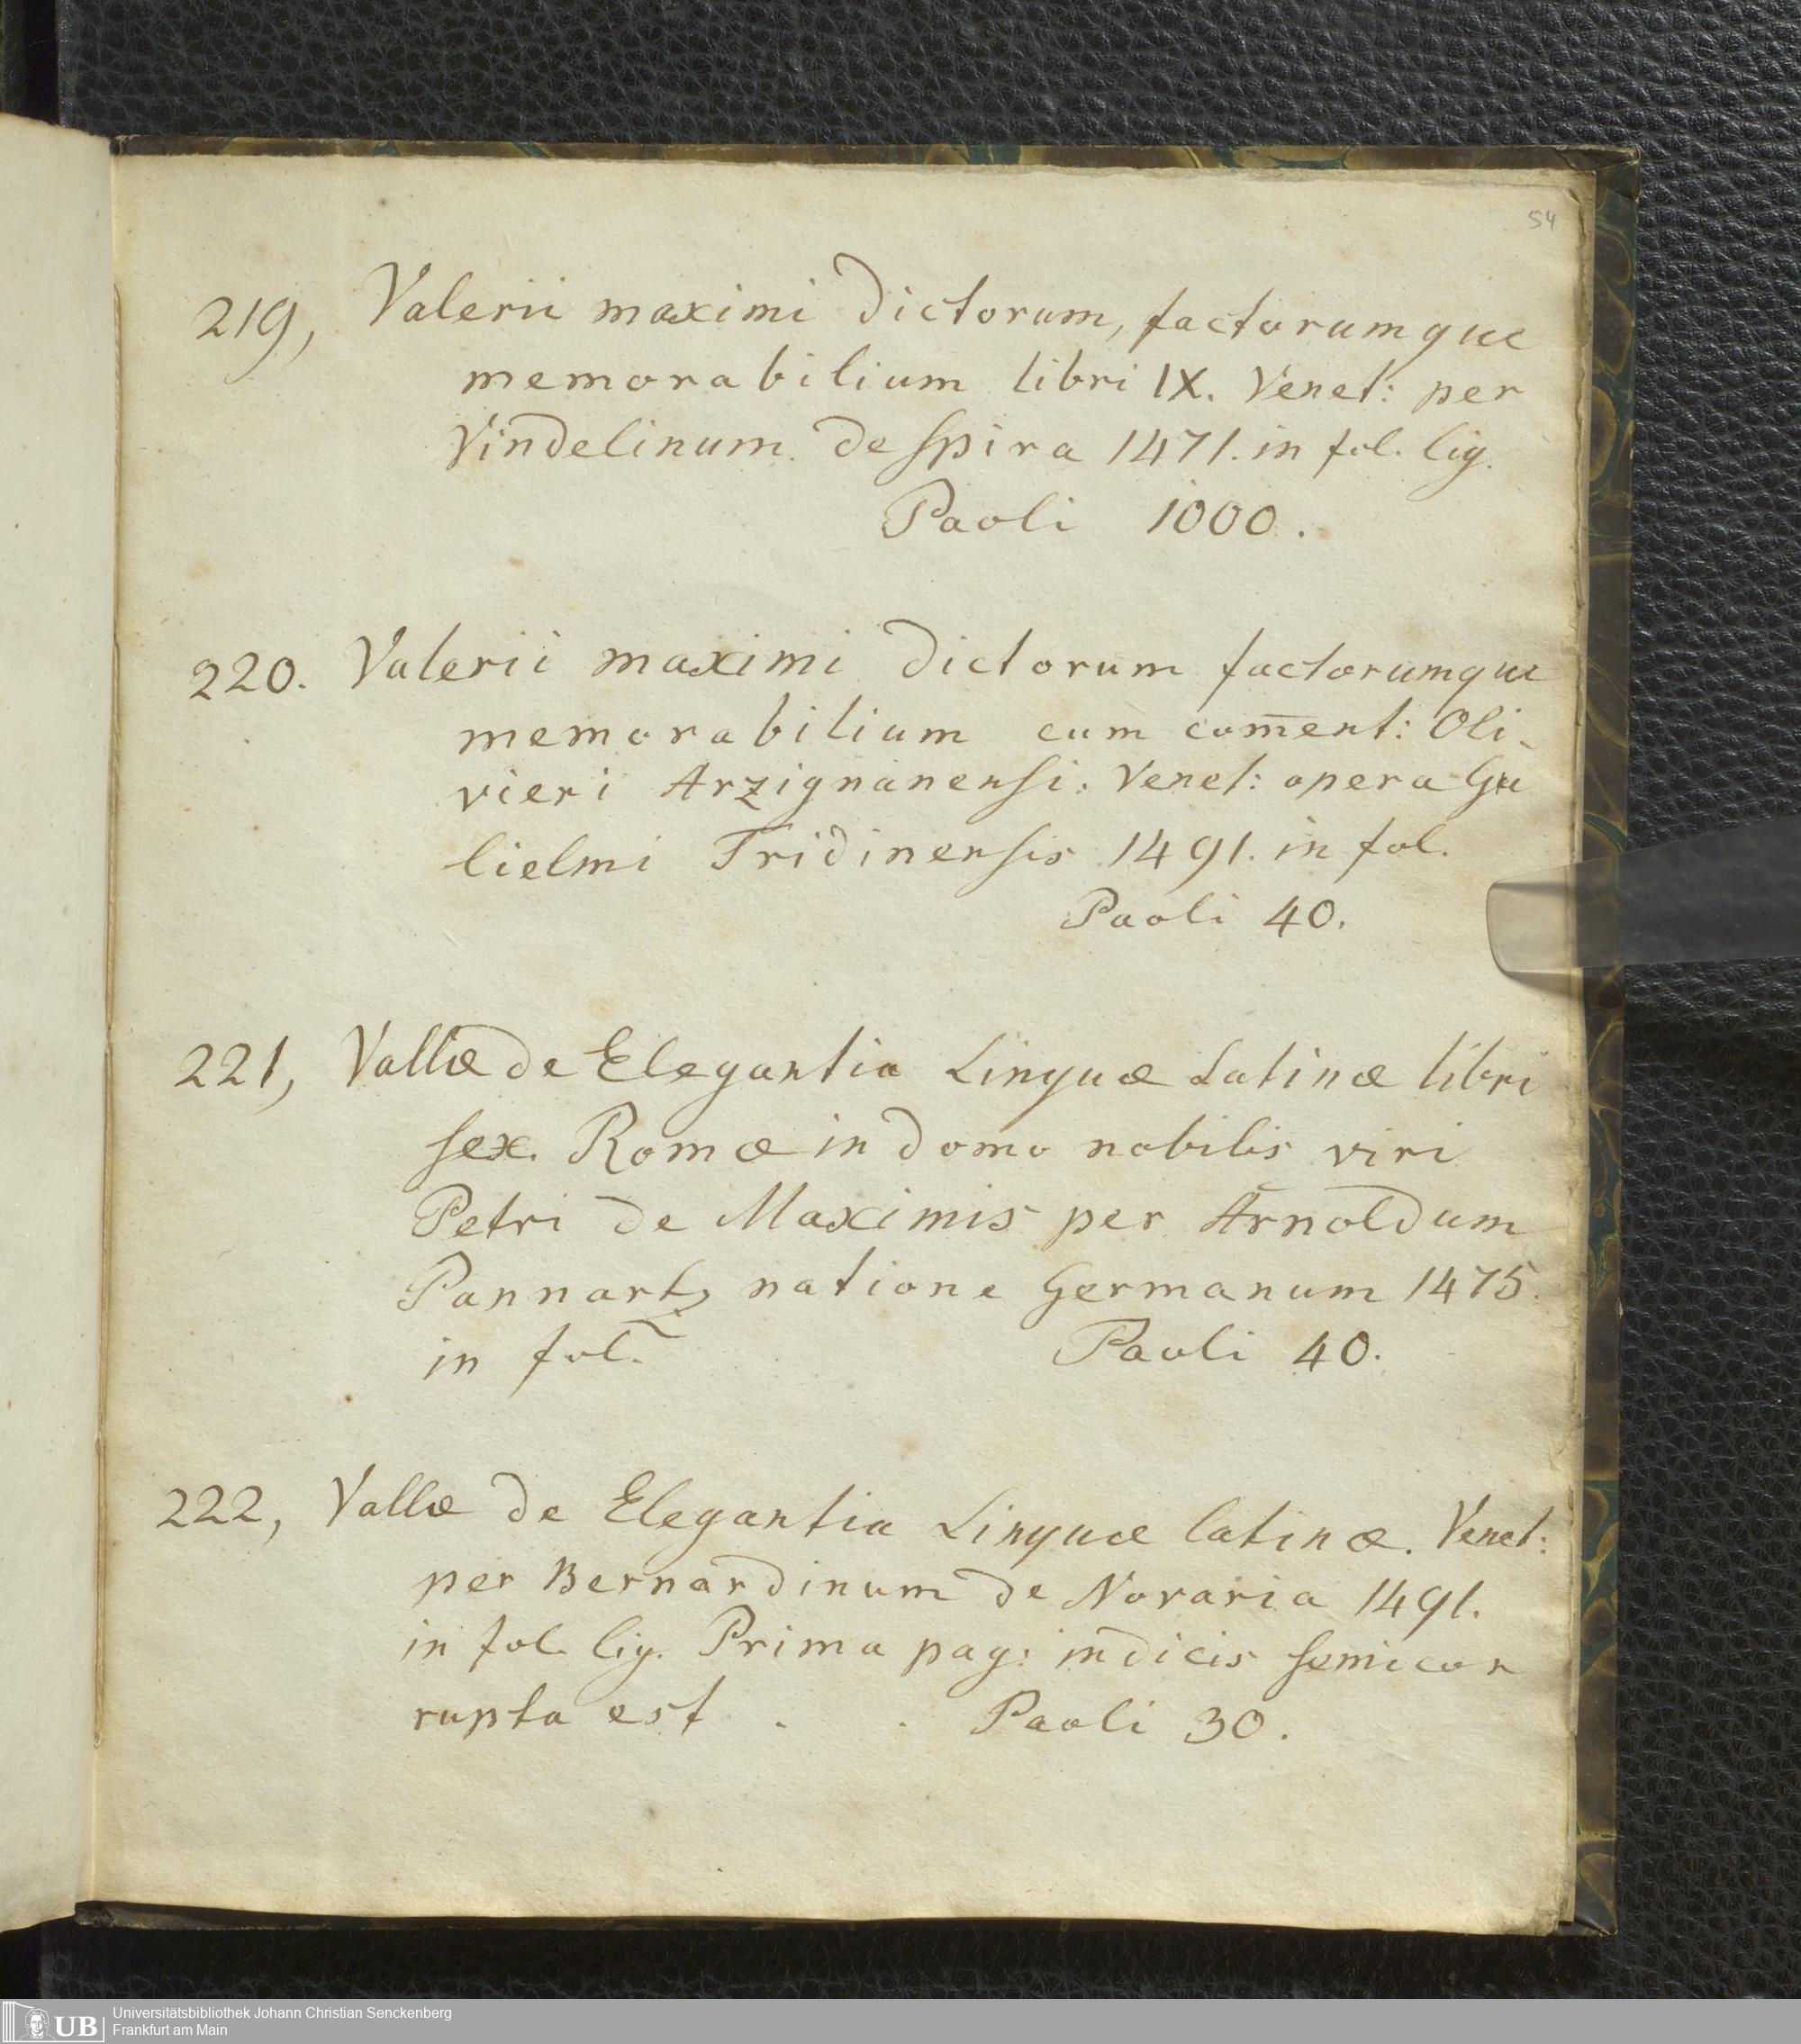 54
219, Valerii maximi dictorum, factorumque
memorabilium libri IX. Venet: per
Vindelinum de Spira 1471. in fol. lig.
Paoli 1000.
220. Valerii maximi dictorum factorumque
memorabilium cum com̄ent: Oli-
vieri Arzignanensi: Venet: opera Gu
lielmi Tridinensis 1491. in fol.
Paoli 40.
221, Vallæ de Elegantia Linguæ Latinæ libri
sex. Romæ in domo nobilis viri
Petri de Maximis per Arnoldum
Pannartz natione Germanum 1475.
in fol. Paoli 40.
222, Vallæ de Elegantia Linguæ latinæ. Venet:
per Bernardinum de Novaria 1491.
in fol. lig. Prima pag: indicis semicor
rupta est . . Paoli 30.
UB
Universitätsbibliothek Johann Christian Senckenberg
Frankfurt am Main